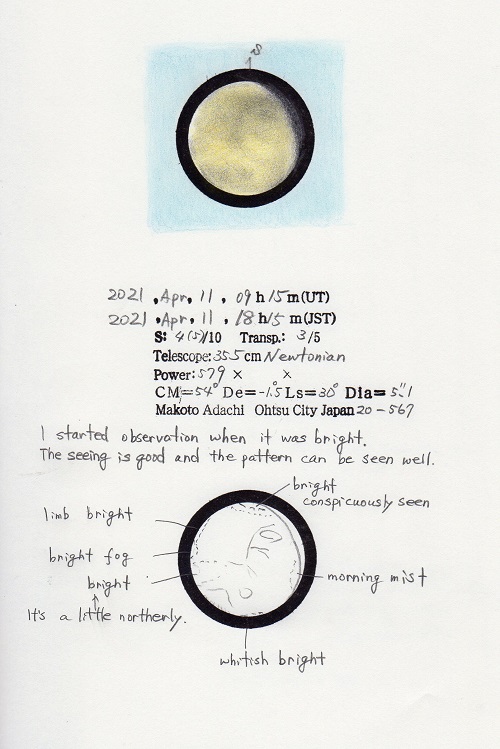 S
2021, Apr. 11, 09 h 15 m (UT)
2021, Apr. 11, 18 h 15 m (JST)
S: 4(5)/10 Transp.: 3/5
Telescope: 355 cm Newtonian
Power: 579 × ×
CM=54° De=-1.5° Ls=30° Dia=5."1
Makoto Adachi Ohtsu City Japan 20-567
I started observation when it was bright.
The seeing is good and the pattern can be seen well.
bright
conspicuously seen
limb bright
bright fog
bright
morning mist
It's a little northerly.
whitish bright